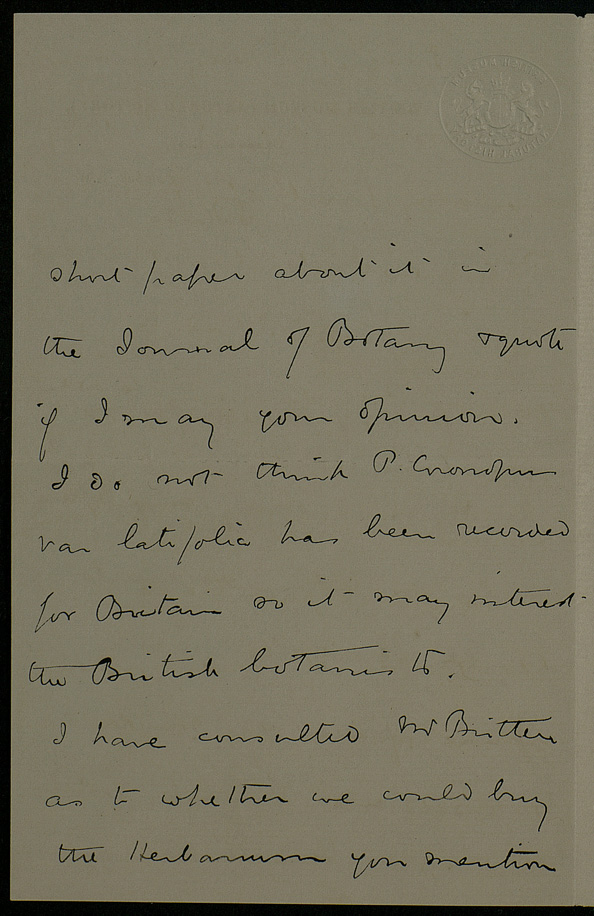 short paper about it in
the Journal of Botany & quote
if I may your opinion.
I do not think P. Coronopus
var latifolia has been recorded
for Britain so it may interest
the British botanists.
I have consulted Mr Britten
as to whether we could buy
the Herbarium you mention